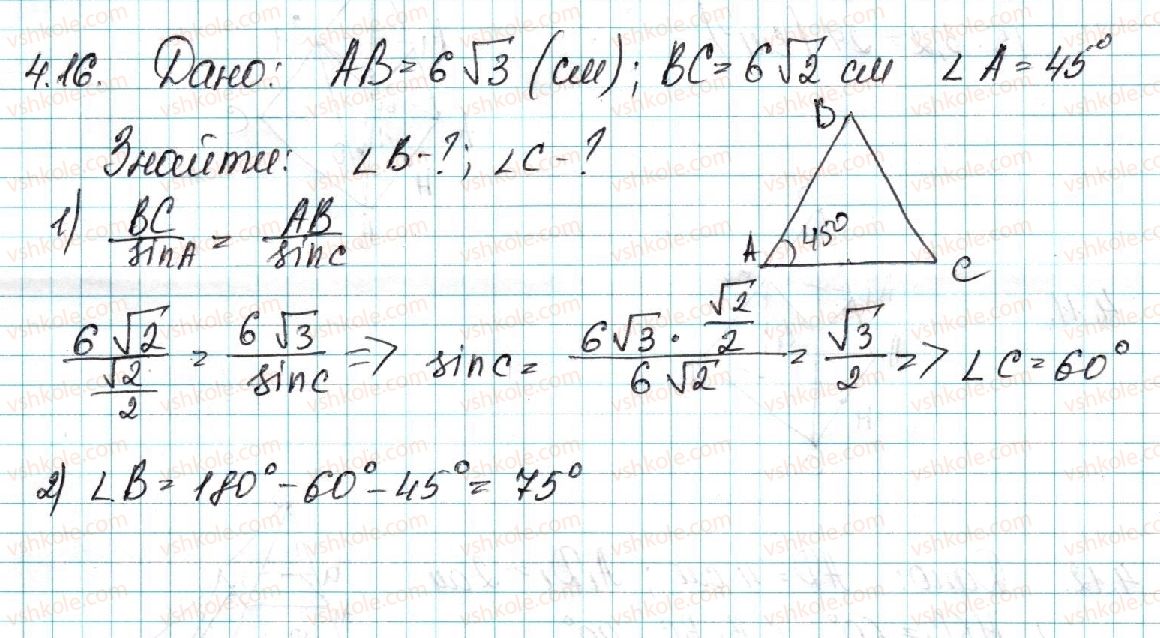 4.16. Дано: AB = 6√3 (см); BC = 6√2 см ∠A = 45°
Знайти: ∠B - ?; ∠C - ?
B
A 45° C
1) BC/sinA = AB/sinC
6√2/(√2/2) = 6√3/sinC => sinC = (6√3 · √2/2)/(6√2) = √3/2 => ∠C = 60°
2) ∠B = 180° - 60° - 45° = 75°